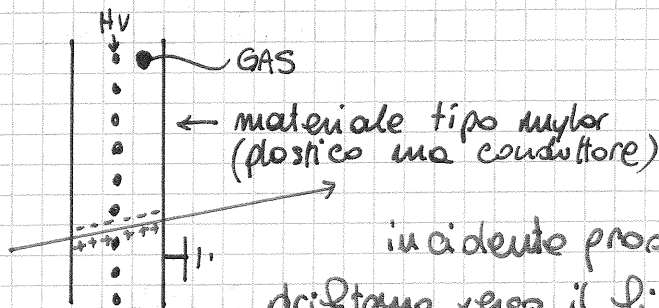 HV
GAS
← materiale tipo mylar
(plastico ma conduttore)
incidente proc
driftano verso il fi